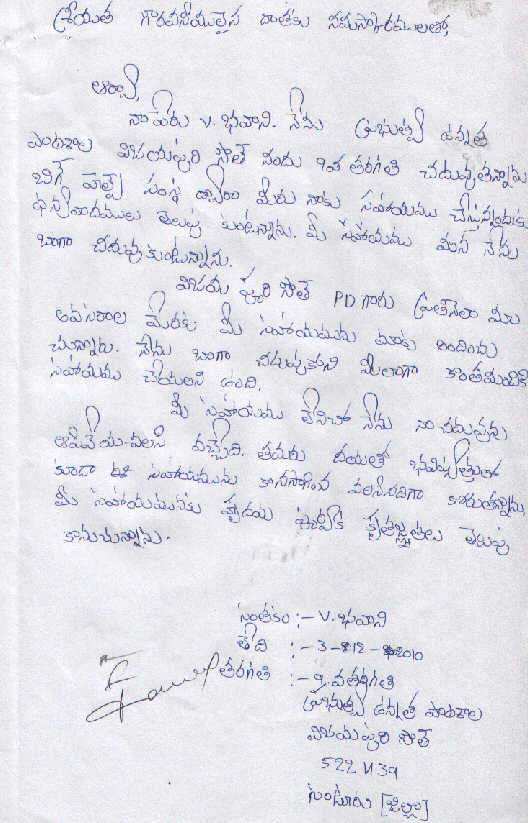 శ్రీయుత గౌరవనీయులైన దాతకు నమస్కారములతో,
ఆర్యా,
నా పేరు V. భవాని. నేను ప్రభుత్వ ఉన్నత
పాఠశాల విజయపురి సౌత్ నందు 9వ తరగతి చదువుతున్నాను
బిగ్ హెల్ప్ సంస్థ ద్వారా మీరు నాకు సహాయము చేస్తున్నందుకు
ధన్యవాదములు తెలుపు కుంటున్నాను. మీ సహాయము వలన నేను
బాగా చదువుకుంటున్నాను.
విజయ పురి సౌత్ PD గారు ప్రతినెలా మేము
అవసరాల మేరకు మీ సహాయమును మాకు అందించు
చున్నారు. నేను బాగా చదువుకొని మీలాగా కొంతమందికి
సహాయము చేయాలని ఉంది.
మీ సహాయము లేనిచో నేను నా చదువును
ఆపివేయవలసి వచ్చేది. తమరు దయతో భవిష్యత్తులో
కూడా ఈ సహాయమును కొనసాగించ వలసిందిగా కోరుతున్నాను
మీ సహాయమునకు హృదయ పూర్వక కృతజ్ఞతలు తెలుపు
కొనుచున్నాను.
సంతకం :- V. భవాని
తేది :- 3-12-2010
తరగతి :- 9వ తరగతి
ప్రభుత్వ ఉన్నత పాఠశాల
విజయపురి సౌత్
522439
గుంటూరు [జిల్లా]